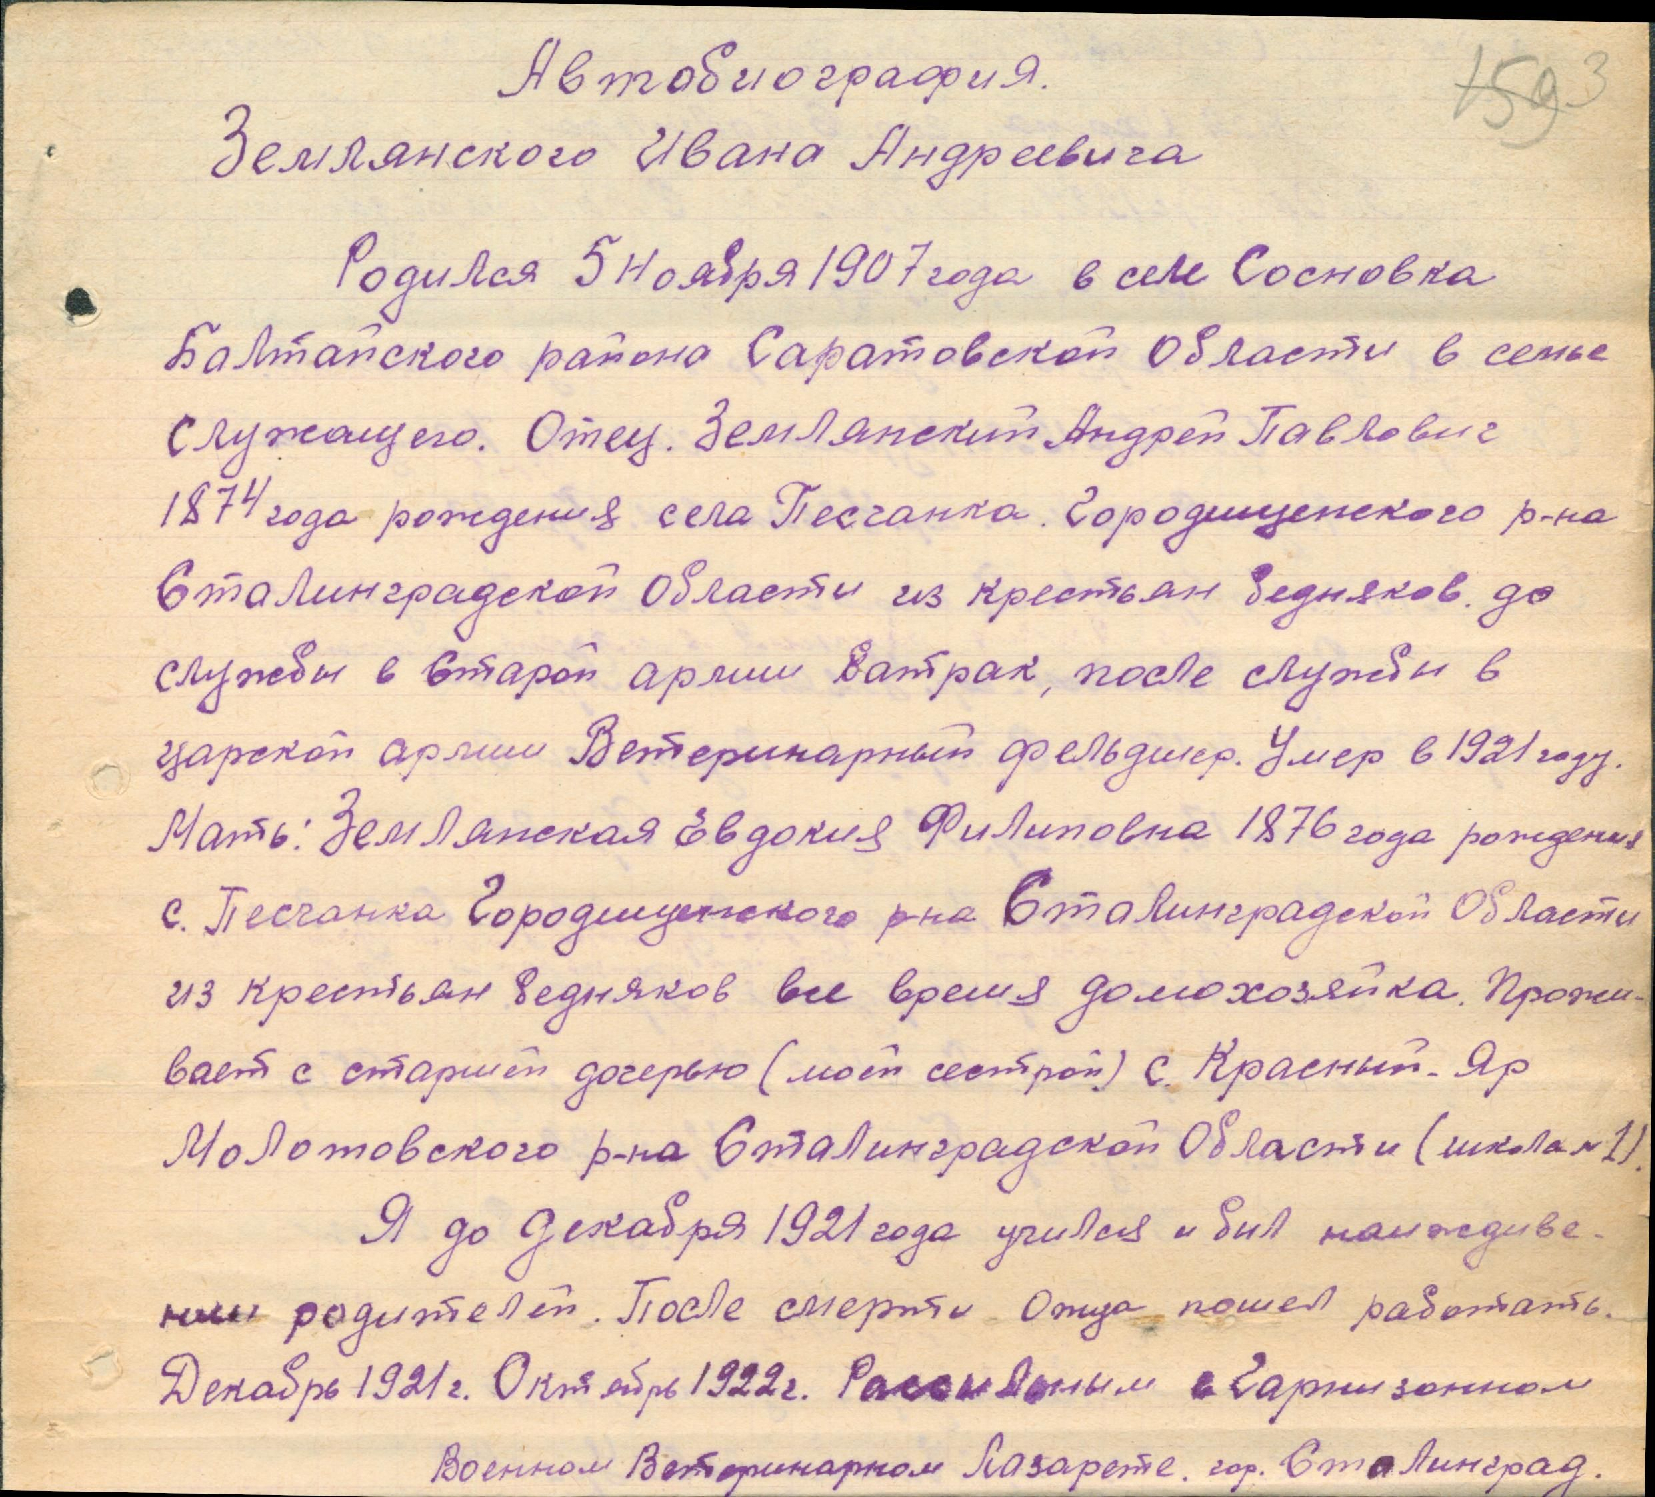 Автобиография.
1593
Землянского Ивана Андреевича
Родился 5 Ноября 1907 года в селе Сосновка
Балтайского района Саратовской Области в семье
Служащего. Отец. Землянский Андрей Павлович
1874 года рождения села Песчанка. Городищенского р-на
Сталинградской Области из крестьян бедняков. до
службы в Старой армии батрак, после службы в
царской армии Ветеринарный фельдшер. Умер в 1921 году.
Мать: Землянская Евдокия Филиповна 1876 года рождения
с. Песчанка Городищенского р-на Сталинградской Области
из крестьян бедняков все время домохозяйка. Прожи-
вает с старшей дочерью (моей сестрой) с. Красный-Яр
Молотовского р-на Сталинградской Области (школа № 1).
Я до Декабря 1921 года учился и был наиждиве-
нии родителей. После смерти Отца пошел работать.
Декабрь 1921 г. Октябрь 1922 г. Рассыльным в Гарнизонном
Военном Ветеринарном Лазарете. гор. Сталинград.